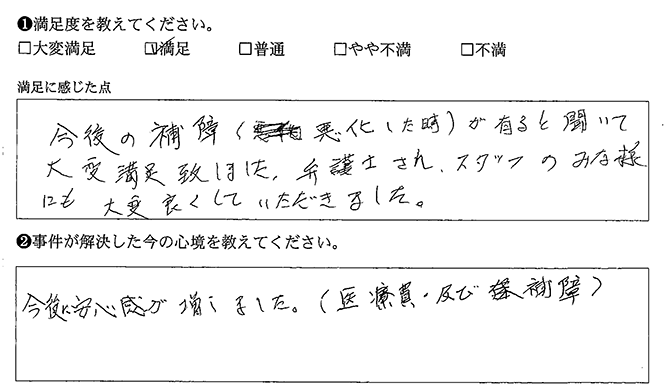 ❶満足度を教えてください。
□大変満足 ☑満足 □普通 □やや不満 □不満
満足に感じた点
今後の補障(悪化した時)が有ると聞いて
大変満足致しました。弁護士さん、スタッフのみな様
にも大変良くしていただきました。
❷事件が解決した今の心境を教えてください。
今後に安心感が増しました。(医療費・及び補障)